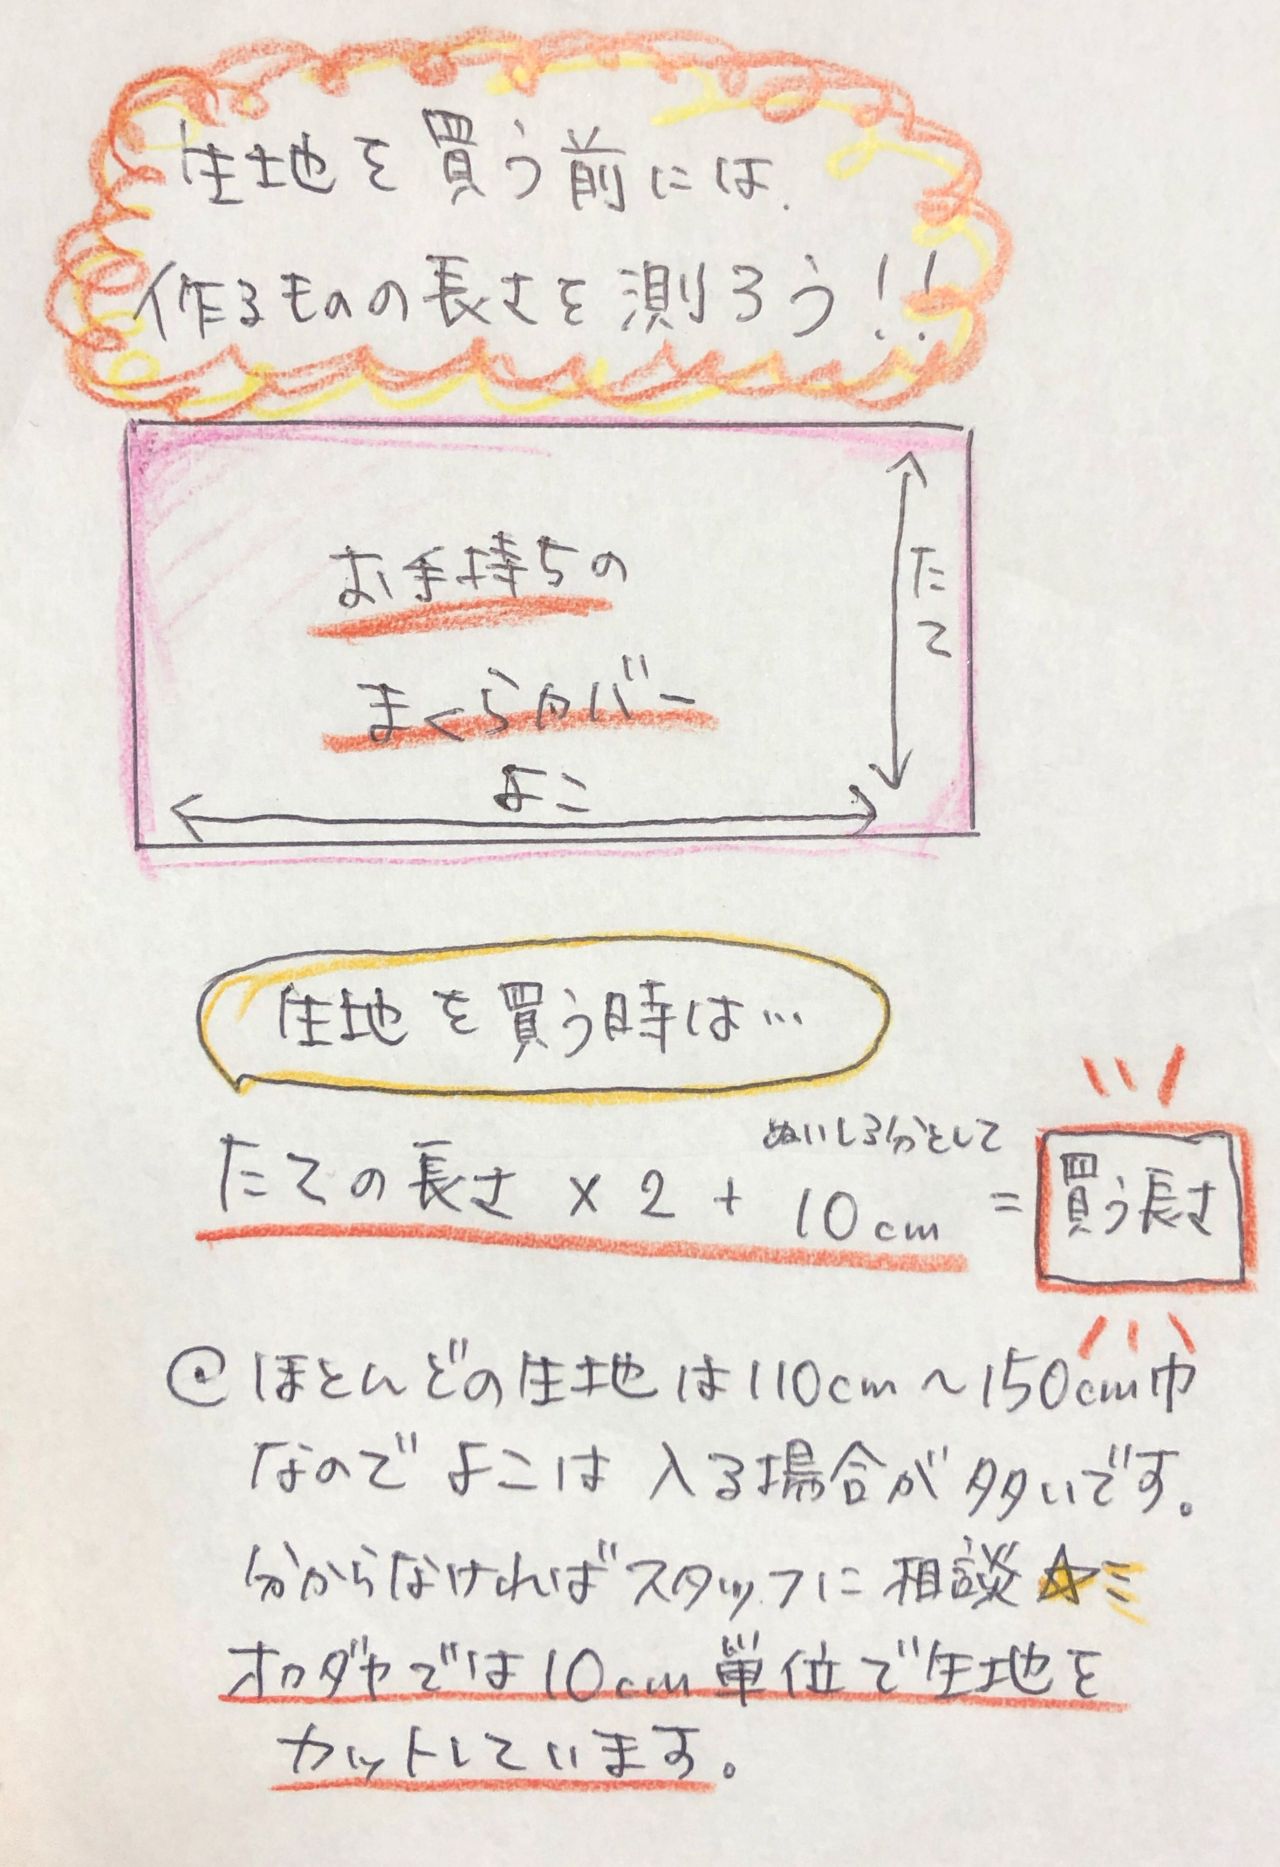 生地を買う前には
作るものの長さを測ろう!!
お手持ちの
まくらカバー
たて
よこ
生地を買う時は…
ぬいしろ分として
たての長さ × 2 + 10cm = 買う長さ
@ほとんどの生地は110cm〜150cm巾
なのでよこは入る場合が多いです。
分からなければスタッフに相談☆ミ
オカダヤでは10cm単位で生地を
カットしています。